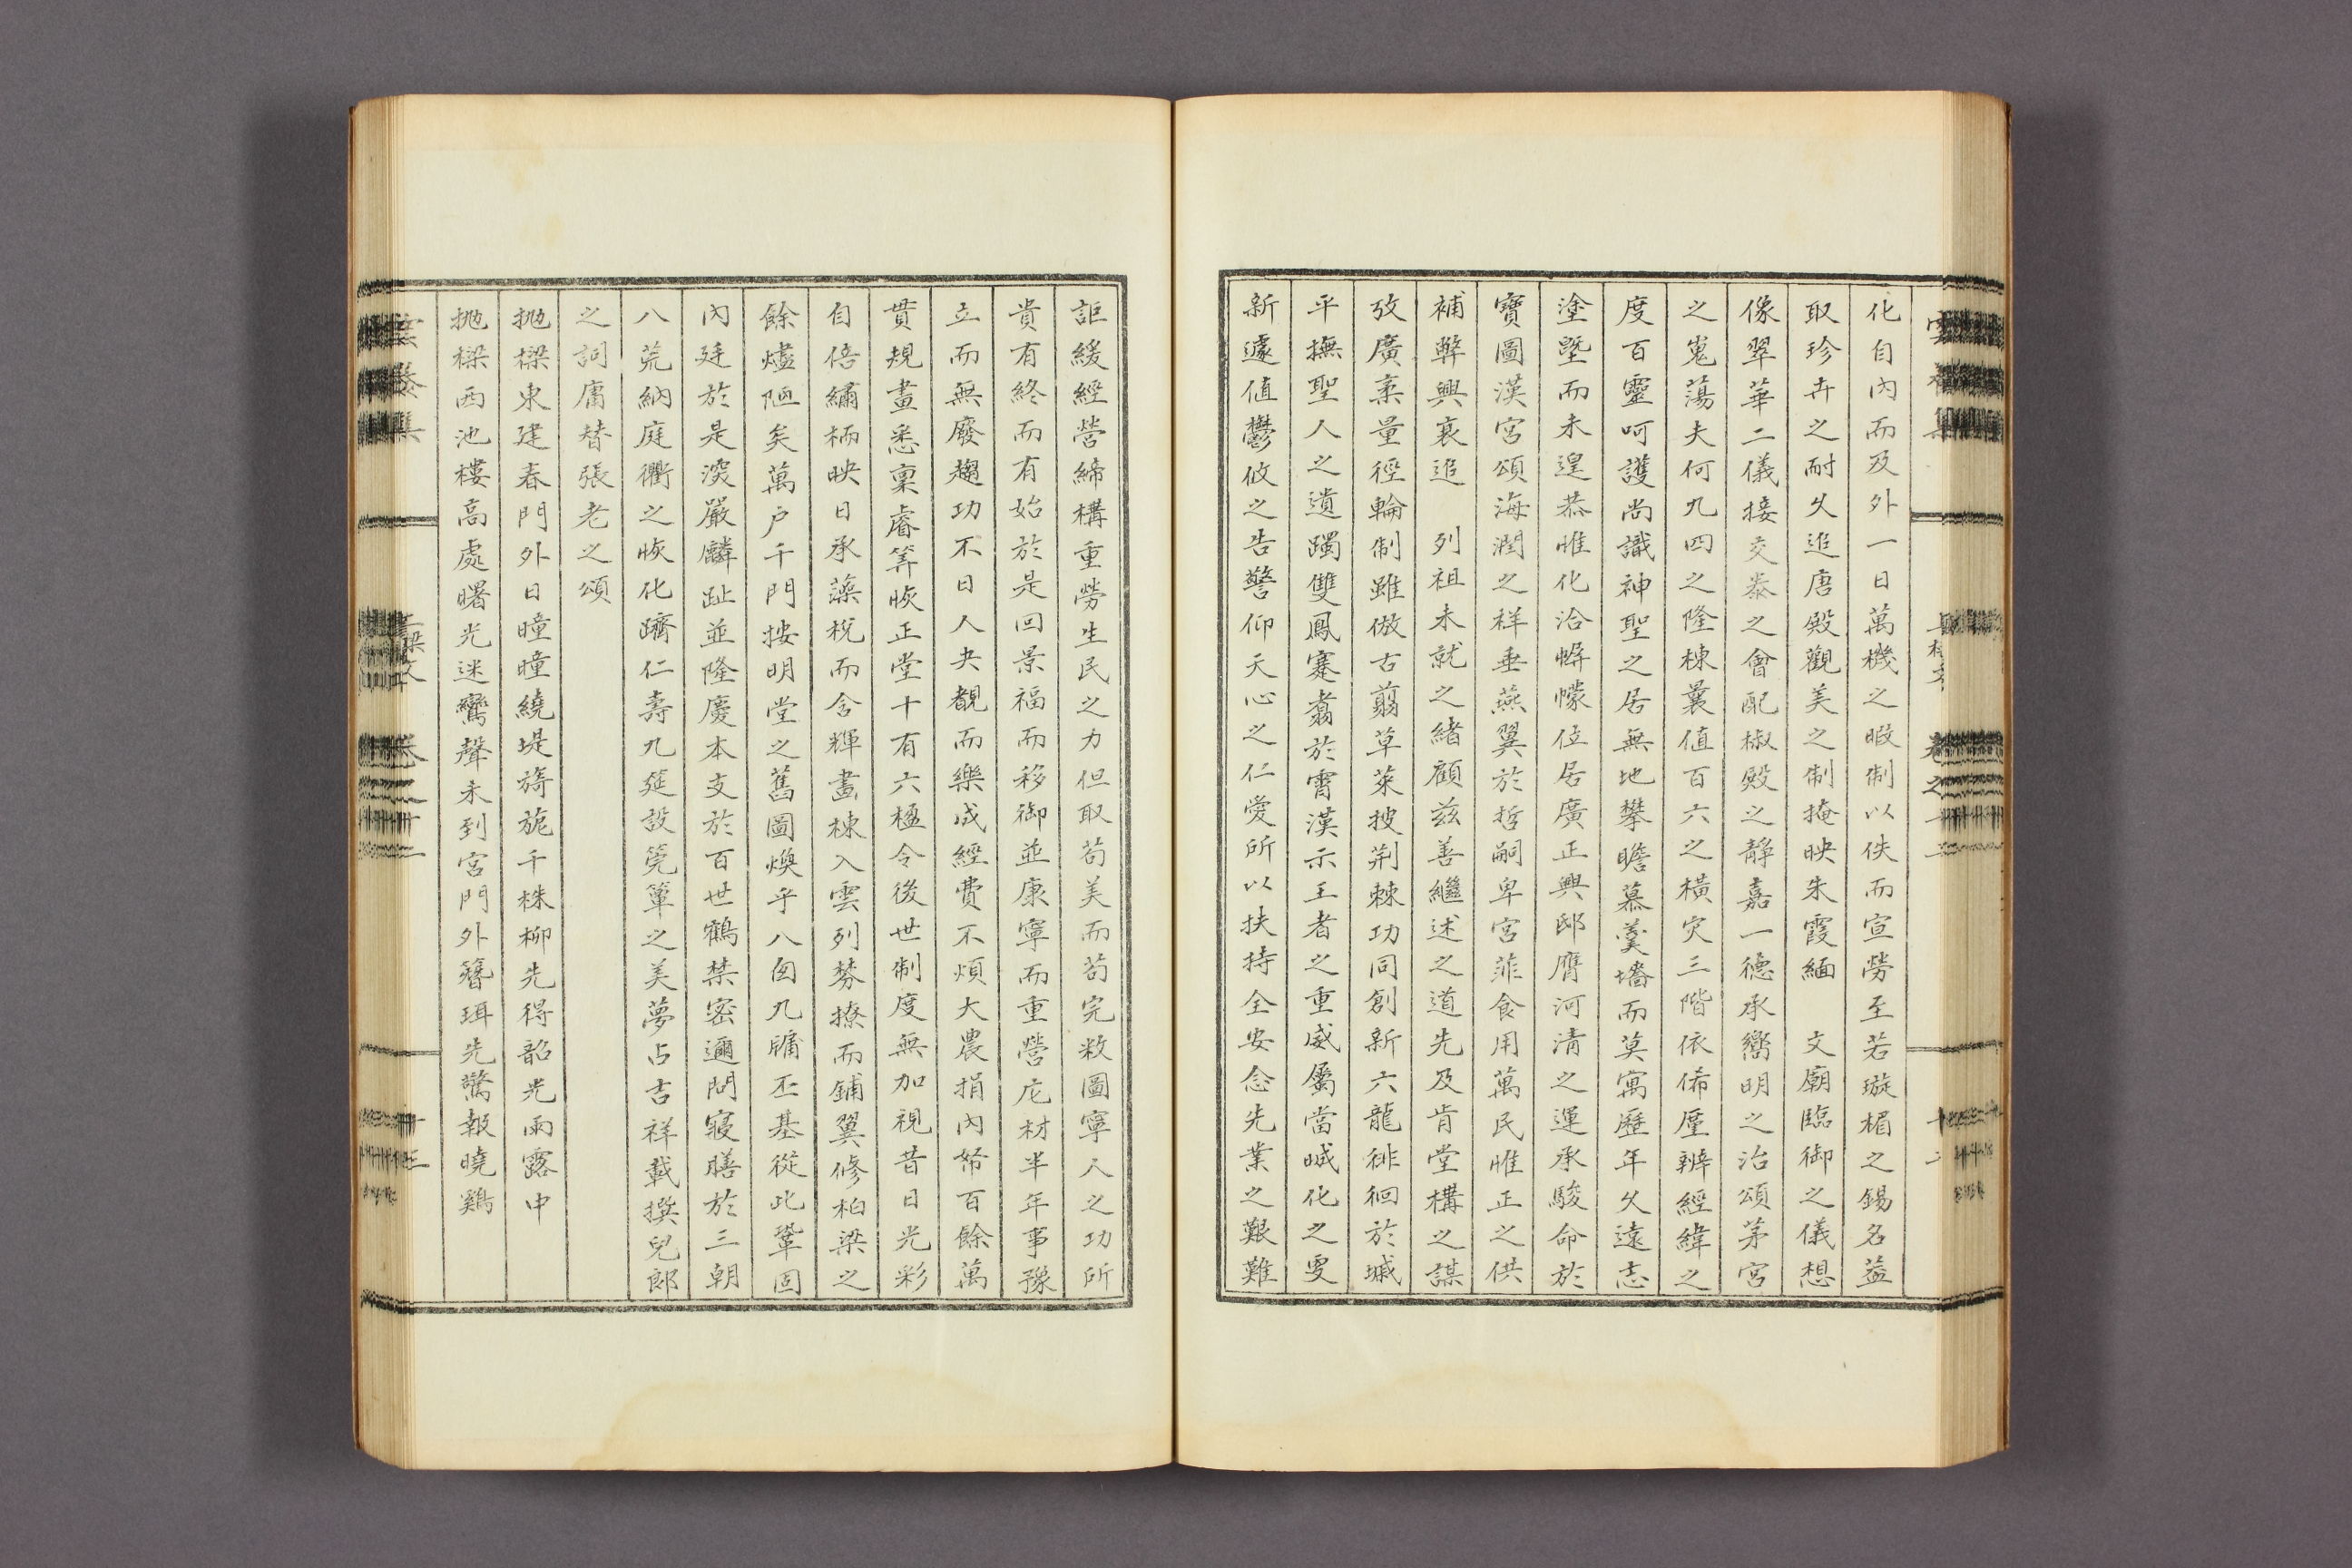 化自內而及外一日萬機之暇制以佚而宣勞至若璇楣之錫名益
取珍卉之耐久追唐殿觀美之制掩映朱霞緬 文廟臨御之儀想
像翠華二儀接交泰之會配椒殿之靜嘉一德承嚮明之治頌茅宮
之嵬蕩夫何九四之隆棟曩值百六之橫灾三階依俙廛辨經緯之
度百靈呵護尚識神聖之居無地攀瞻慕羹墻而莫寓歷年久遠志
塗塈而未遑恭惟化洽帲幪位居廣正興邸膺河淸之運承駿命於
寶圖漢宮頌海潤之祥垂燕翼於哲嗣卑宮菲食用萬民惟正之供
補弊興衰追 列祖未就之緖顧玆善繼述之道先及肯堂構之謀
攷廣袤量徑輪制雖倣古翦草萊披荊棘功同創新六龍徘徊於墄
平撫聖人之遺躅雙鳳騫翥於霄漢示王者之重威屬當墄化之更
新遽值鬱攸之告警仰天心之仁愛所以扶持全安念先業之艱難
詎緩經營締構重勞生民之力但取苟美而苟完敉圖寧人之功所
貴有終而有始於是回景福而移御並康寧而重營庀材半年事豫
立而無廢趨功不日人夬覩而樂成經費不煩大農捐內帑百餘萬
貫規畫悉稟睿筭恢正堂十有六楹令後世制度無加視昔日光彩
自倍繡桷映日承藻梲而含輝畫棟入雲列棼橑而鋪翼修柏梁之
餘燼陋矣萬戶千門按明堂之舊圖煥乎八囱九牖丕基從此鞏固
內廷於是深嚴麟趾並隆慶本支於百世鶴禁密邇問寢膳於三朝
八荒納庭衢之恢化躋仁壽九筵設筦簟之美夢占吉祥載撰兒郞
之詞庸替張老之頌
抛樑東建春門外日曈曈繞堤旖旎千株柳先得韶光雨露中
抛樑西池樓高處曙光迷鸞聲未到宮門外簪珥先驚報曉鷄